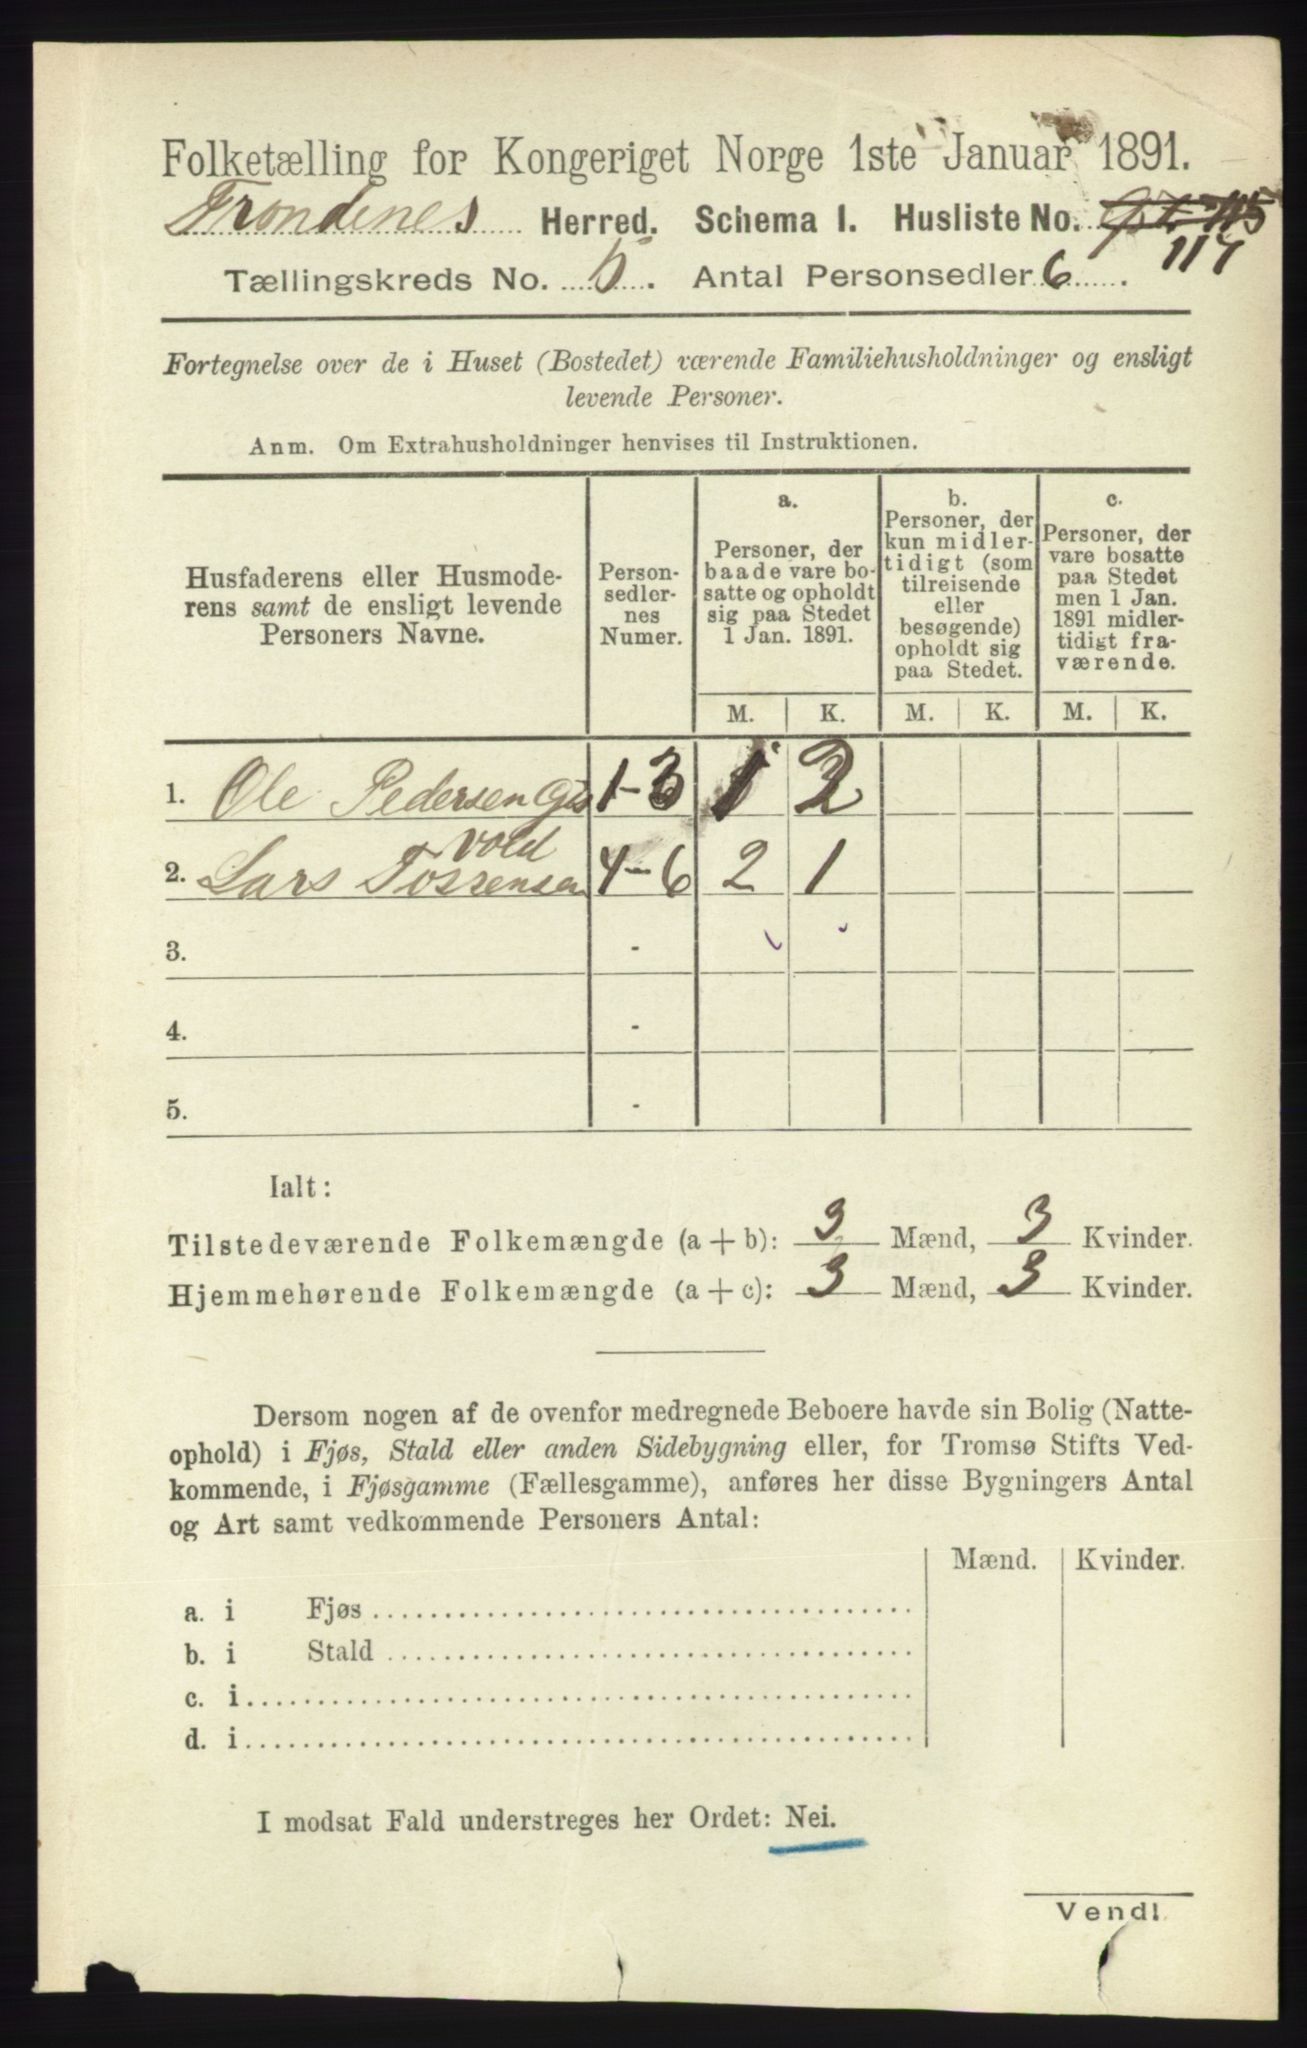 Folketælling for Kongeriget Norge 1ste Januar 1891.
Trondenes Herred. Schema I. Husliste No. 115
117
Tællingskreds No. 5. Antal Personsedler 6.
Fortegnelse over de i Huset (Bostedet) værende Familiehusholdninger og ensligt
levende Personer.
Anm. Om Extrahusholdninger henvises til Instruktionen.
Husfaderens eller Husmode-
rens samt de ensligt levende
Personers Navne.
Person-
sedler-
nes
Numer.
a.
Personer, der
baade vare bo-
satte og opholdt
sig paa Stedet
1 Jan. 1891.
b.
Personer, der
kun midler-
tidigt (som
tilreisende
eller
besøgende)
opholdt sig
paa Stedet.
c.
Personer, der
vare bosatte
paa Stedet
men 1 Jan.
1891 midler-
tidigt fra-
værende.
M. K. M. K. M. K.
1. Ole Pedersen Gis 1-3 1 2
vold
2. Lars Torrensen 4-6 2 1
3. -
4. -
5. -
Ialt:
Tilstedeværende Folkemængde (a + b): 3 Mænd, 3 Kvinder.
Hjemmehørende Folkemængde (a + c): 3 Mænd, 3 Kvinder.
Dersom nogen af de ovenfor medregnede Beboere havde sin Bolig (Natte-
ophold) i Fjøs, Stald eller anden Sidebygning eller, for Tromsø Stifts Ved-
kommende, i Fjøsgamme (Fællesgamme), anføres her disse Bygningers Antal
og Art samt vedkommende Personers Antal:
Mænd. Kvinder.
a. i Fjøs
b. i Stald
c. i
d. i
I modsat Fald understreges her Ordet: Nei.
Vend!